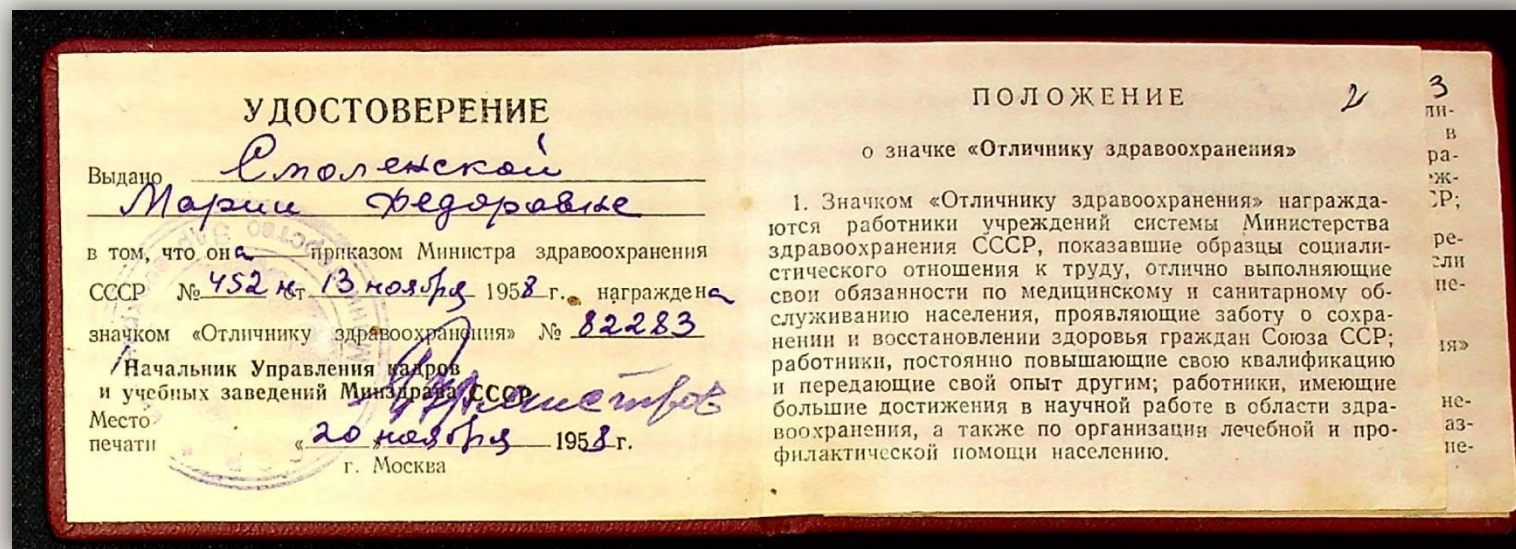 УДОСТОВЕРЕНИЕ
Выдано Смоленской
Марии Федоровне
в том, что она приказом Министра здравоохранения
СССР № 452 н от 13 ноября 1958 г. награждена
значком «Отличнику здравоохранения» № 82283
Начальник Управления кадров
и учебных заведений Минздрава СССР
Место
печати «20» ноября 1958 г.
г. Москва
ПОЛОЖЕНИЕ 2
о значке «Отличнику здравоохранения»
1. Значком «Отличнику здравоохранения» награжда-
ются работники учреждений системы Министерства
здравоохранения СССР, показавшие образцы социали-
стического отношения к труду, отлично выполняющие
свои обязанности по медицинскому и санитарному об-
служиванию населения, проявляющие заботу о сохра-
нении и восстановлении здоровья граждан Союза ССР;
работники, постоянно повышающие свою квалификацию
и передающие свой опыт другим; работники, имеющие
большие достижения в научной работе в области здра-
воохранения, а также по организации лечебной и про-
филактической помощи населению.
3
ли-
в
ра-
еж-
СР;
ре-
сли
пе-
ия»
не-
аз-
не-